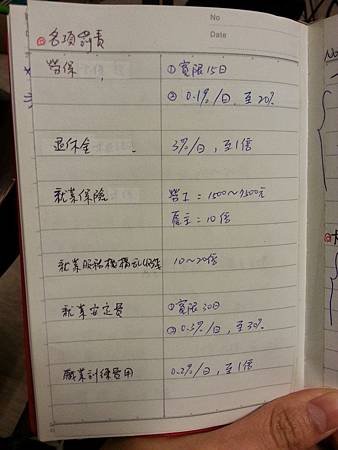 No
Date
各項罰責
勞保
① 寬限15日
② 0.1%/日, 至20%
退休金
3%/日, 至1倍
就業保險
勞工 = 1500~7500元
雇主 = 10倍
就業服務機構
10~20倍
就業安定費
① 寬限30日
② 0.3%/日, 至30%
職業訓練費用
0.2%/日, 至1倍